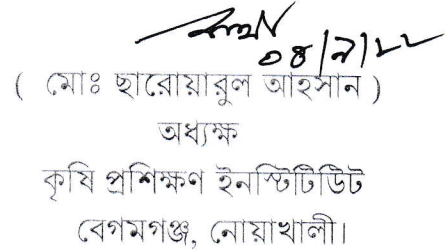 ০৪/৯/২২
( মোঃ ছারোয়ারুল আহসান )
অধ্যক্ষ
কৃষি প্রশিক্ষণ ইনস্টিটিউট
বেগমগঞ্জ, নোয়াখালী।